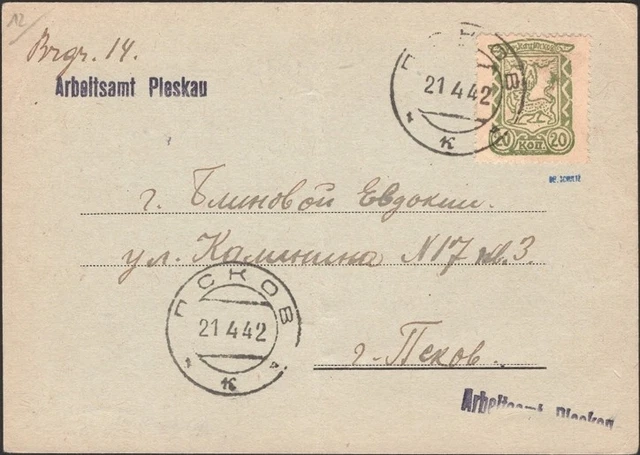 12/
Brgr. 14.
Arbeitsamt Pleskau
ПСКОВ
21 4 42
к
20 Коп. 20
г. Блиновой Евдокии.
ул. Калинина N17 кв. 3
ПСКОВ
21 4 42
к
г. Псков.
Arbeitsamt Pleskau